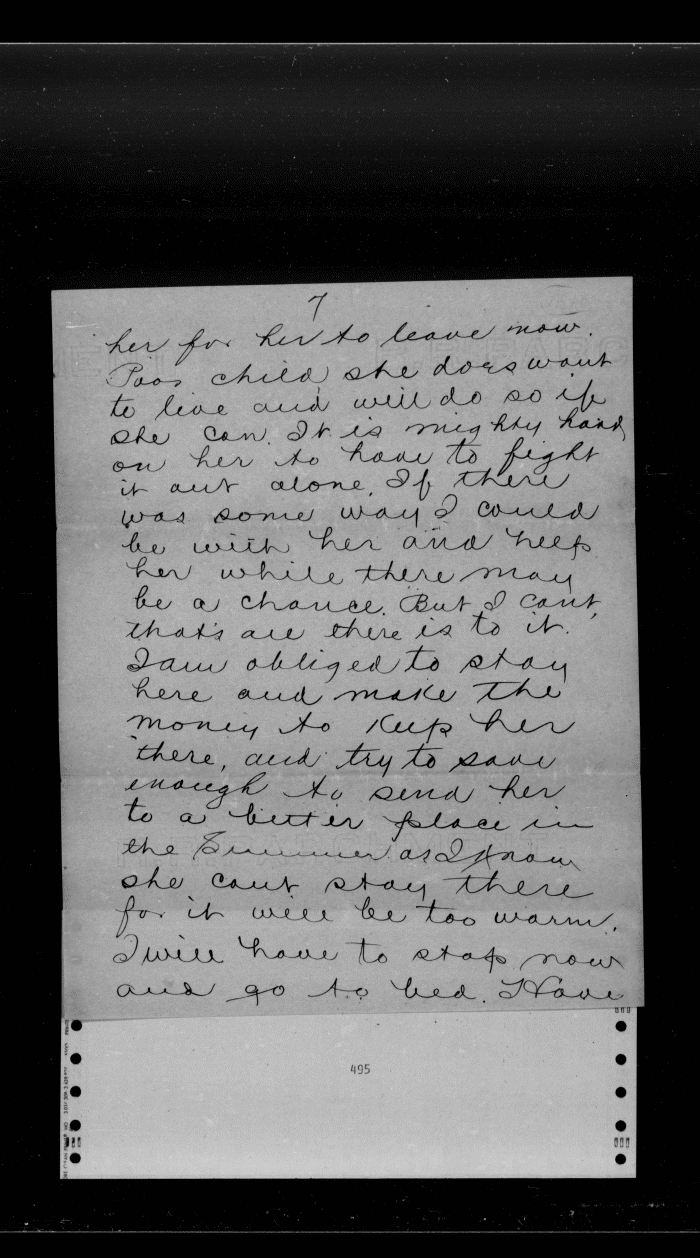 7
her for her to leave now.
Poor child, she does want
to live and will do so if
she can. It is mighty hard
on her to have to fight
it out alone. If there
was some way I could
be with her and help
her while there may
be a chance. But I cant,
that's all there is to it.
I am obliged to stay
here and make the
money to keep her
there, and try to save
enough to send her
to a better place in
the Summer as I know
she cant stay there
for it will be too warm.
I will have to stop now
and go to bed. Have
495